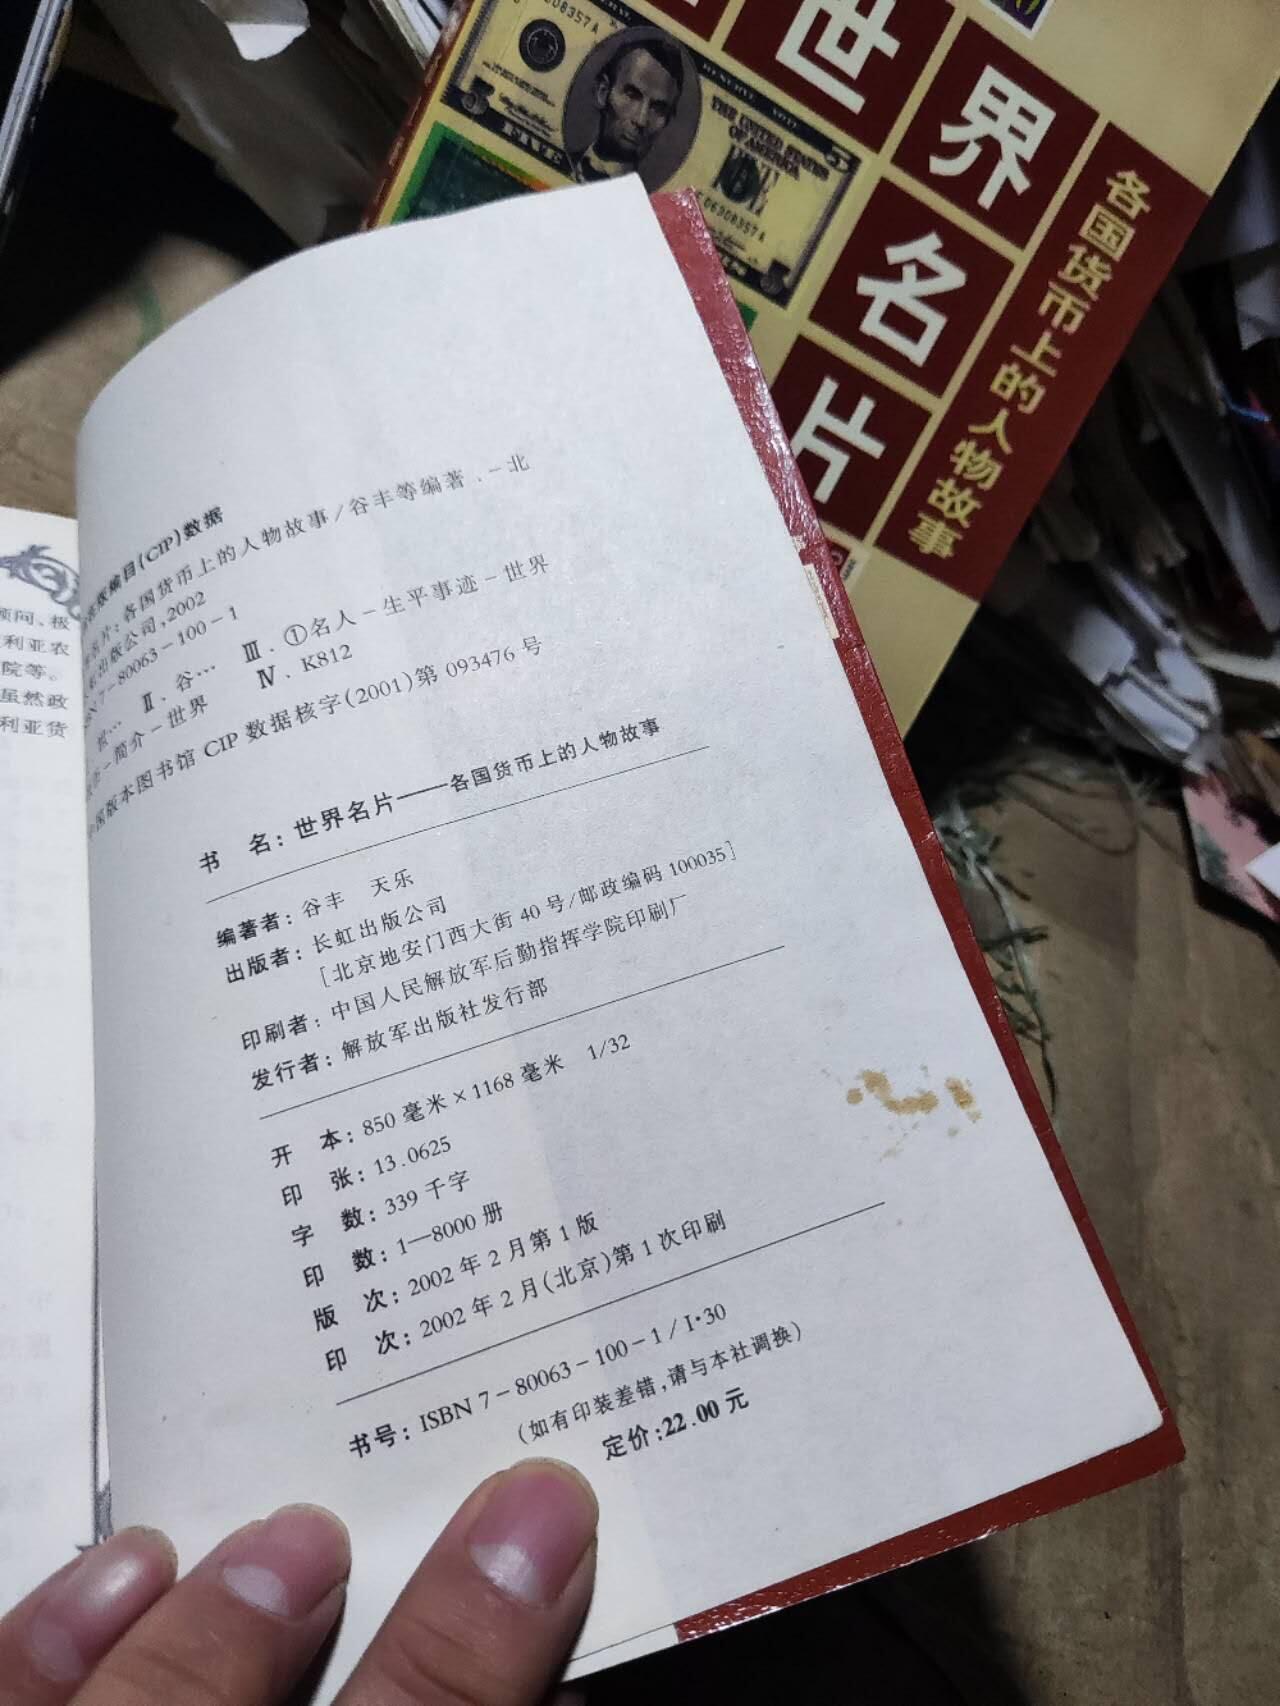 世
界
名
片
各国货币上的人物故事
RESERVE NOTE
THE UNITED STATES
OF AMERICA
08357A
06308357A
FIVE
5
顾问、极
利亚农
院等。
虽然政
利亚货
编目(CIP)数据
名片:各国货币上的人物故事/谷丰等编著.-北
出版公司,2002
7-80063-100-1
Ⅱ.谷… Ⅲ.①名人-生平事迹-世界
-简介-世界 Ⅳ.K812
版本图书馆 CIP 数据核字(2001)第 093476 号
书 名:世界名片——各国货币上的人物故事
编著者:谷丰 天乐
出版者:长虹出版公司
[北京地安门西大街 40 号/邮政编码 100035]
印刷者:中国人民解放军后勤指挥学院印刷厂
发行者:解放军出版社发行部
开 本:850 毫米×1168 毫米 1/32
印 张:13.0625
字 数:339 千字
印 数:1—8000 册
版 次:2002 年 2 月第 1 版
印 次:2002 年 2 月(北京)第 1 次印刷
书号:ISBN 7-80063-100-1/I·30
(如有印装差错,请与本社调换)
定价:22.00 元